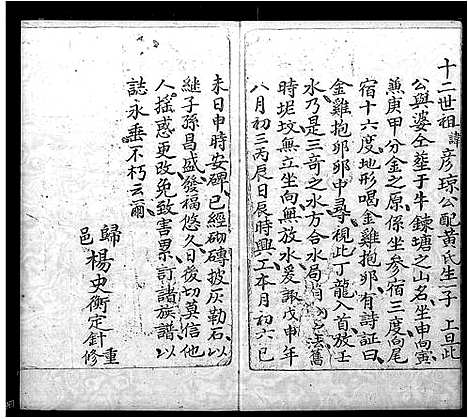 十二世祖諱彦琼公配黄氏生一子上旦此
公與婆仝塟于牛鍊塘之山名坐申向寅
兼庚甲分金之原係坐参宿三度向尾
宿十六度地形喝金雞抱卵有詩証曰
金雞抱卵卵中尋視此丁龍首放壬
水乃是三奇之水方合水局法舊
時坭坟無立坐向無放水爰諏戊申年
八月初三丙辰日辰時興工本月初六己
未日申時安碑已經砌磚披灰勒石以
継子孫昌盛發福悠久日後切莫信他
人揺惑更改免致害累訂諸族譜以
誌永垂不朽云爾
歸邑楊史衡定針重修